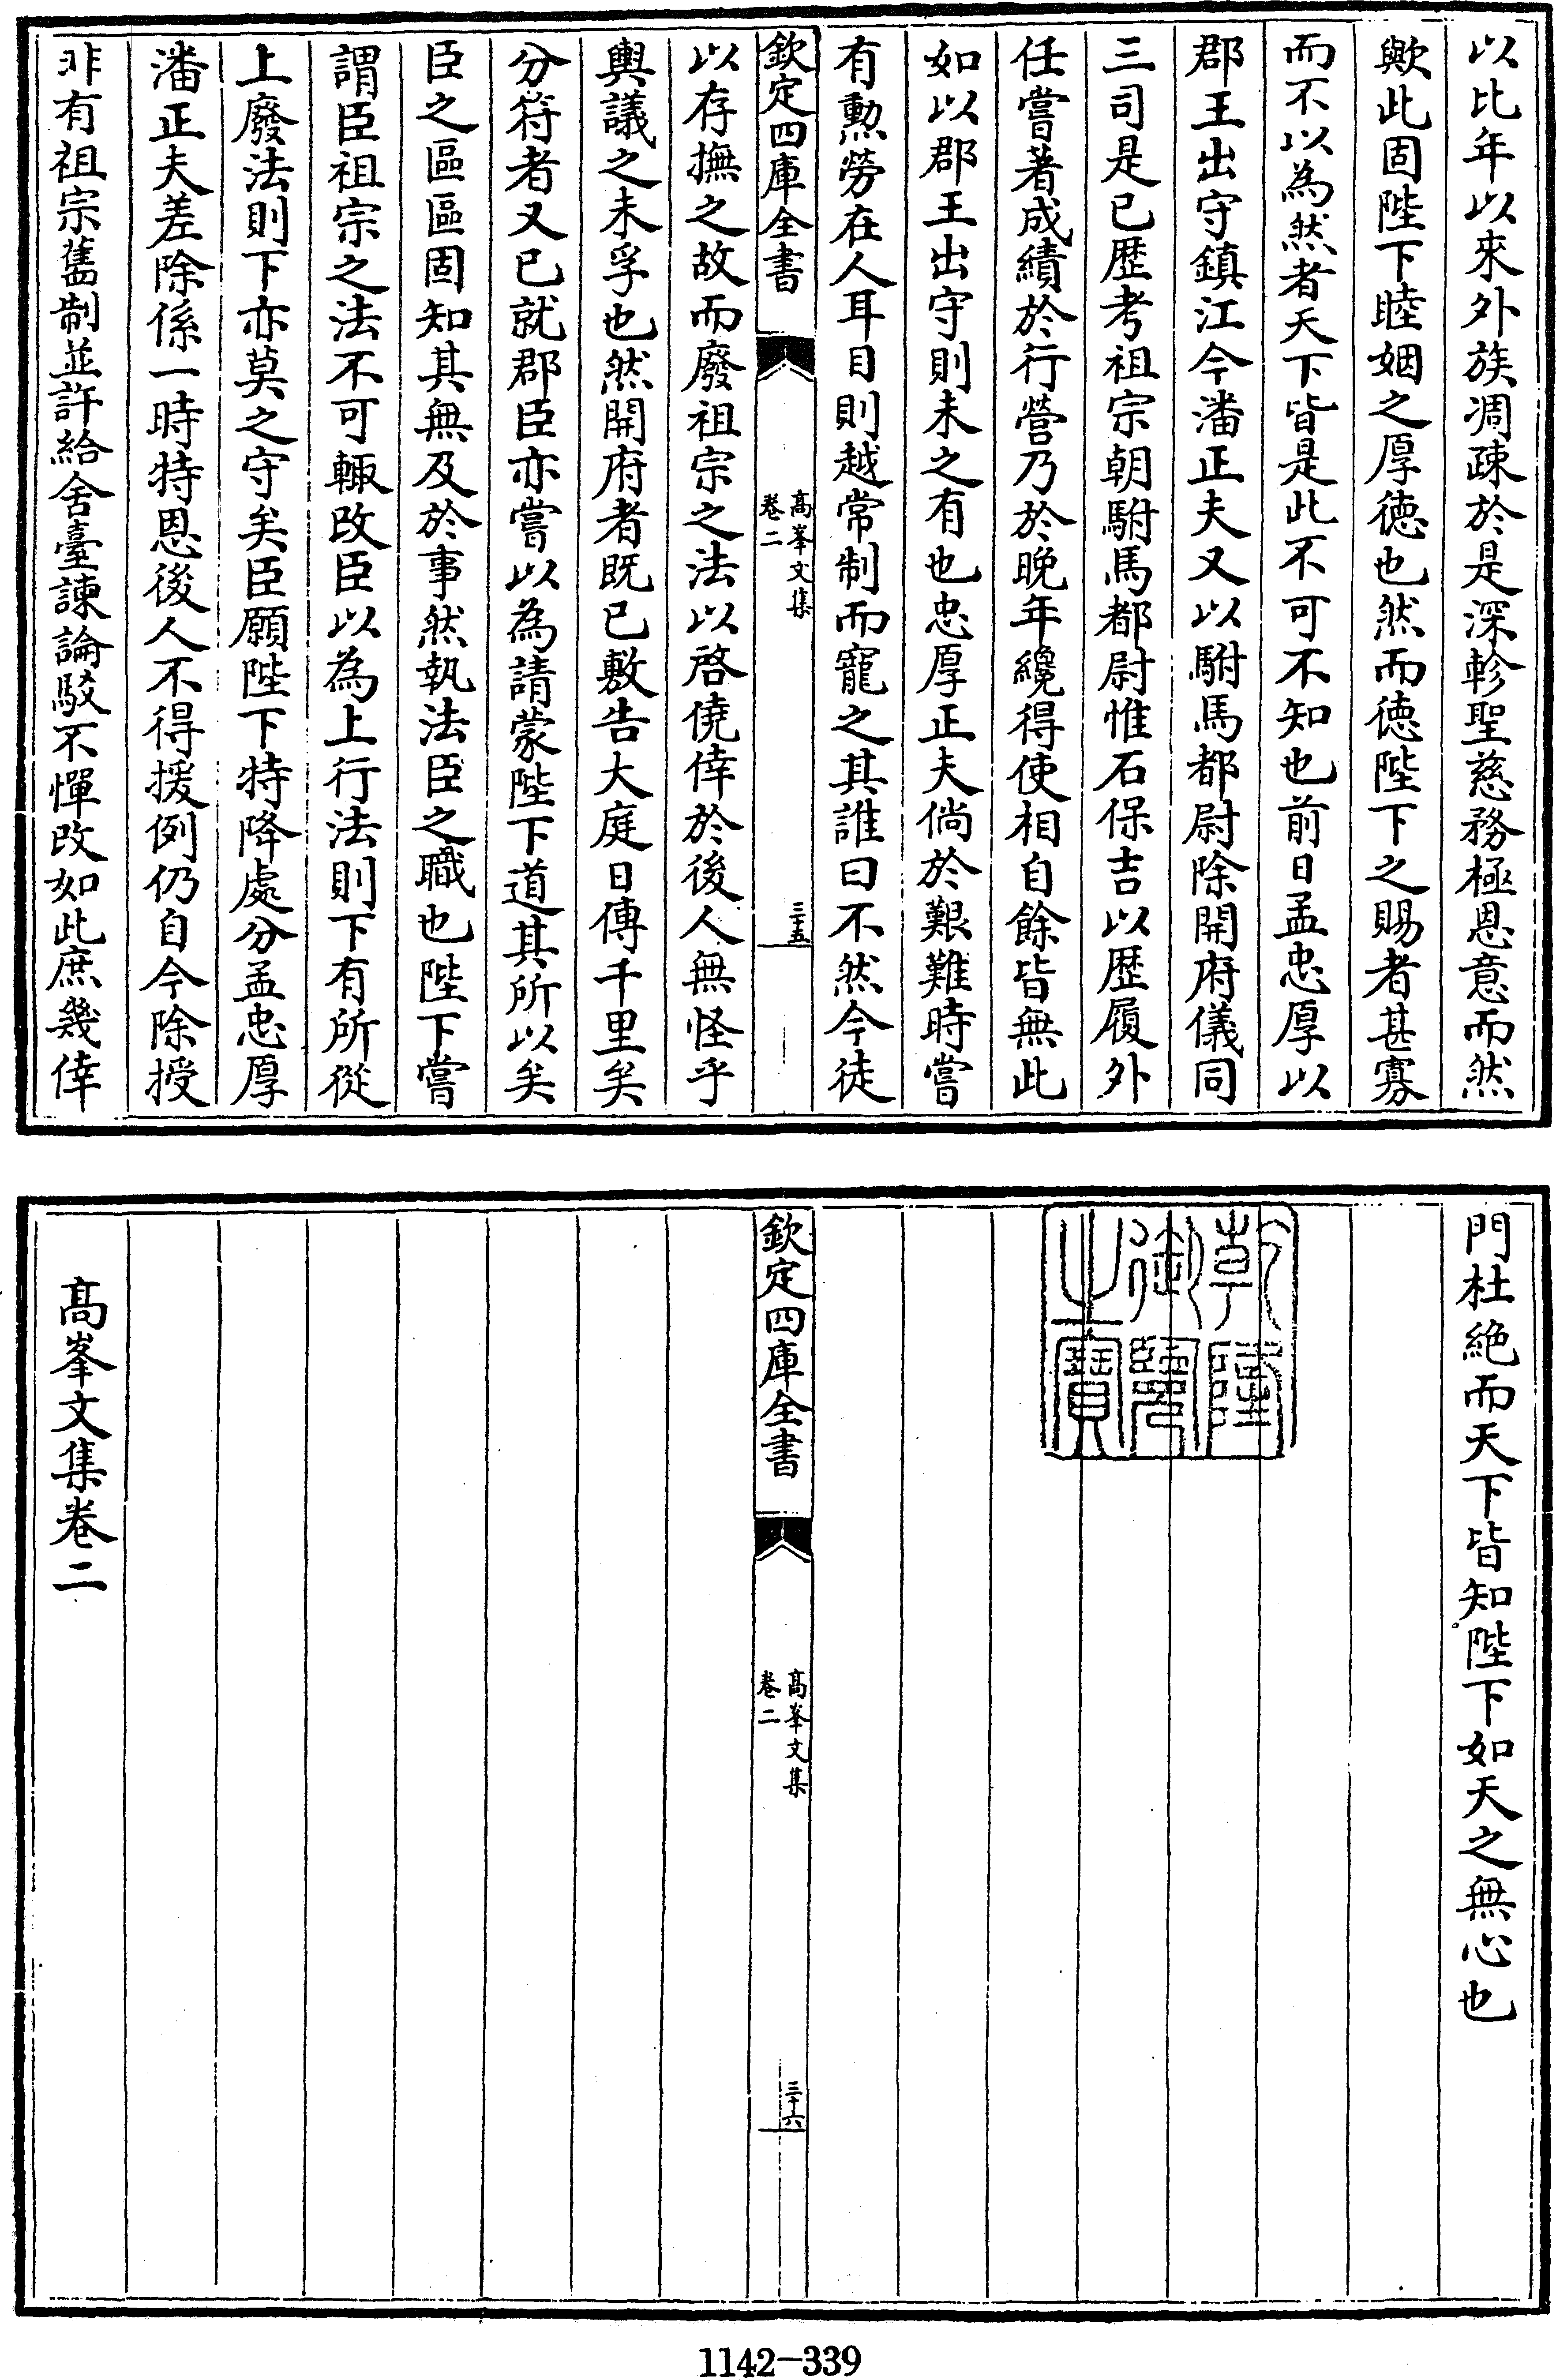 以比年以來外族凋疎於是深軫聖慈務極恩意而然
歟此固陛下睦姻之厚徳也然而徳陛下之賜者甚寡
而不以為然者天下皆是此不可不知也前日孟忠厚以
郡王出守鎮江今潘正夫又以駙馬都尉除開府儀同
三司是已歴考祖宗朝駙馬都尉惟石保吉以歴履外
任嘗著成績於行營乃於晚年纔得使相自餘皆無此
如以郡王出守則未之有也忠厚正夫倘於艱難時嘗
有勲勞在人耳目則越常制而寵之其誰曰不然今徒
欽定四庫全書
高峯文集
卷二
三十五
以存撫之故而廢祖宗之法以啓僥倖於後人無怪乎
輿議之未孚也然開府者既已敷告大庭日傳千里矣
分符者又已就郡臣亦嘗以為請蒙陛下道其所以矣
臣之區區固知其無及於事然執法臣之職也陛下嘗
謂臣祖宗之法不可輙改臣以為上行法則下有所從
上廢法則下亦莫之守矣臣願陛下特降處分孟忠厚
潘正夫差除係一時特恩後人不得援例仍自今除授
非有祖宗舊制並許給舍臺諫論駁不憚改如此庶幾倖
門杜絶而天下皆知陛下如天之無心也
乾隆御覽之寶
欽定四庫全書
高峯文集
卷二
三十六
高峯文集卷二
1142-339